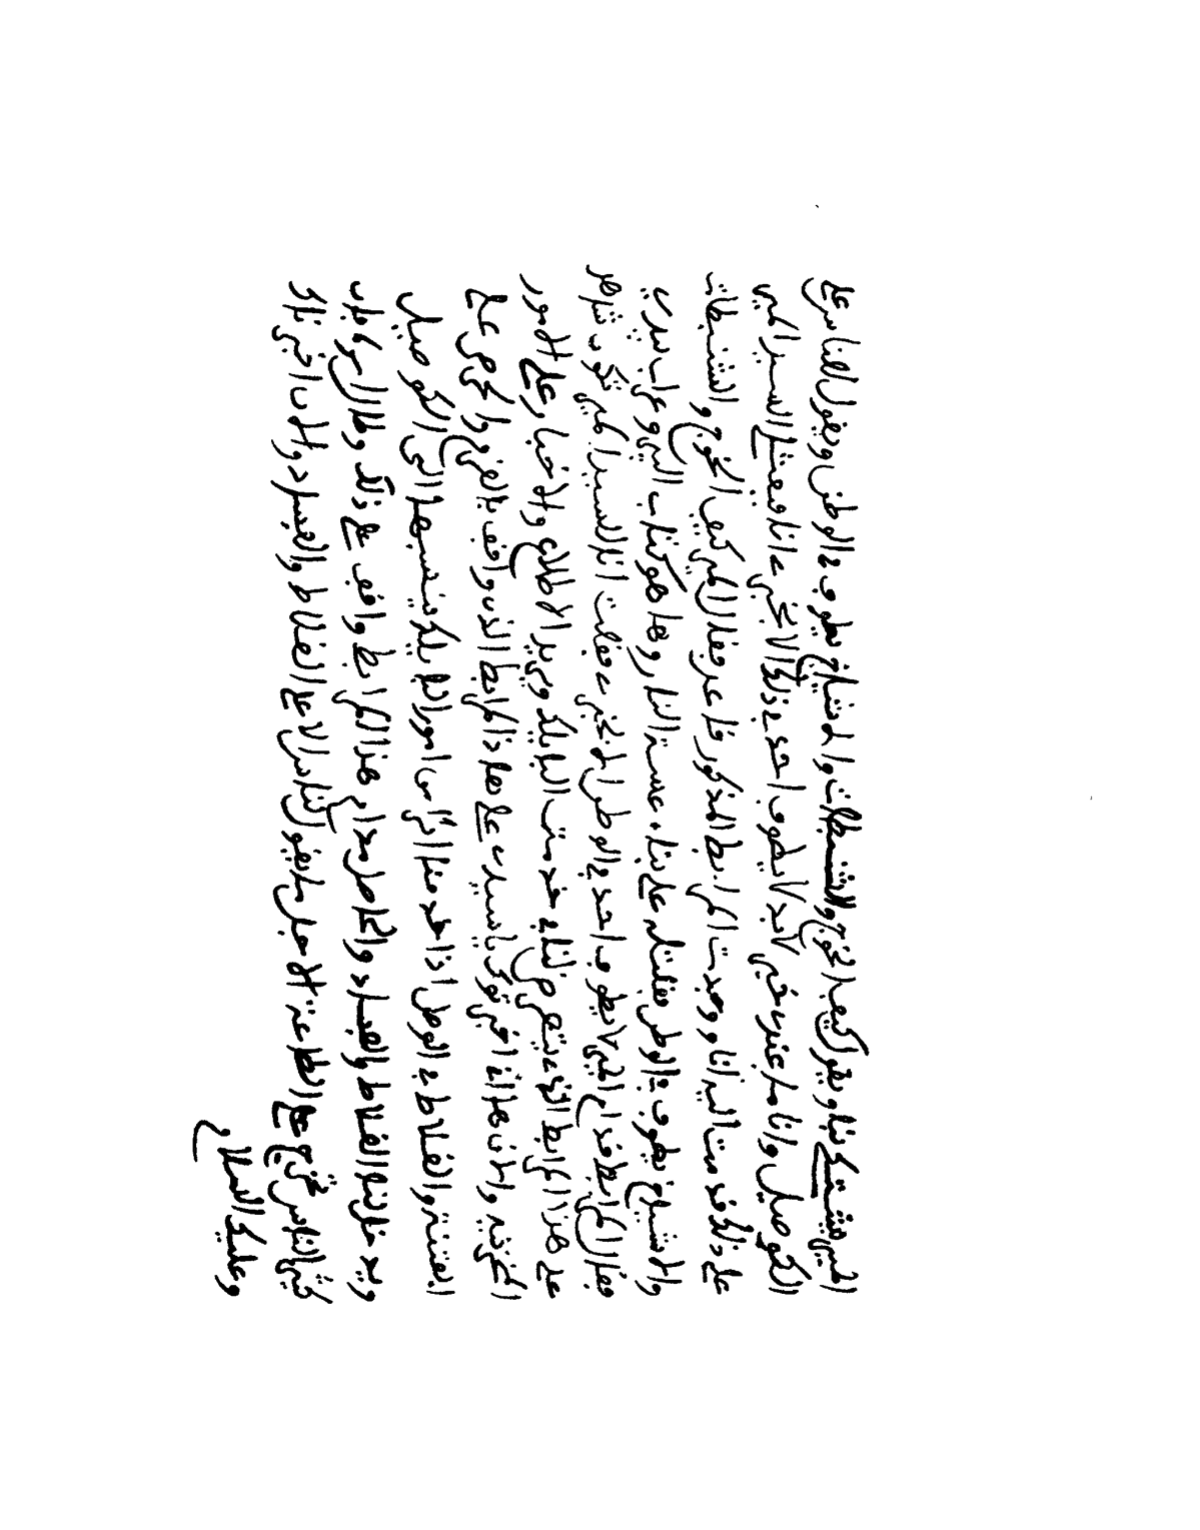 المير كتابا ويقول كيف الخوج والشنطات والاشياخ يطوف في الوطن ويقول للناس على
الكوصيل وانا ما عندي خبر لابد لا يطوف احد في ذلك الا بخبري انا فبعثلي السيد المير
على ذلك قدمت اليه انا ووجدت المرابط المذكور قاعد فقال المير كيف الخوج والشنطات
والاشياخ يطوف في الوطن فقلتله على بناء عسة النار وها هو كتاب بيدي
فقال المرابط قدام المير لا يطوف احد في الوطن الا بخبري فقلت انا للسيد المير تكون شاهد
على هذا المرابط الذي يتعرض لنا في خدمت البايلك ويريد الاطلاع والاخبار على الامور
المخزنيه والان ها انا اخبرتك يا سيدي على هاذ المرابط الذي واقف بالعزم والحرص على
الفتنة والغلاط في الوطن اذا خدمنا من امور البايلك ينسبها الى الكوصيل
ويدخلنا الغلاط والفساد والحاصل مدام هذا المرابط واقف على ذلك وطال
كثير الناس تخرج على الطاعة لاجل ما يقول للناس الا على الغلاط والفساد والان اخبرناك
وعليك السلام